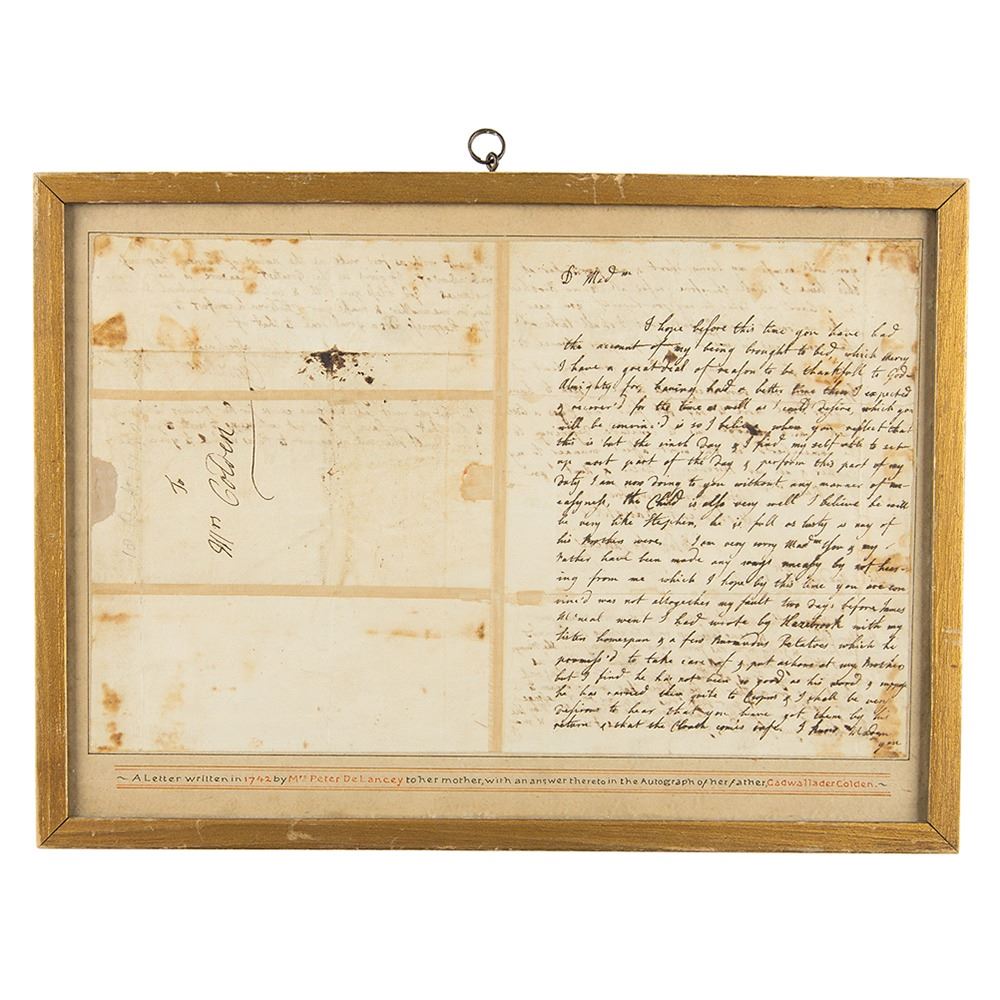 To
Mrs Colden
Dr Madm
I hope before this time you have had
the account of my being brought to bed, which mercy
I have a great deal of reason to be thankfull to God
Almighty for, haveing had a better time then I expected
& recover'd for the time as well as I could desire, which you
will be convinc'd is so I believe when you reflect that
this is but the ninth Day & I find my self able to set
up most part of the Day & perform this part of my
Duty I am now doing to you without any manner of un-
easyness, the Child is also very well I believe he will
be very like Stephen, he is full as lusty as any of
his Brothers were. I am very sorry Madm You & my
Father have been made any ways uneasy by not hear-
ing from me which I hope by this time you are con
vinc'd was not altogether my fault two Days before James
McNeal went I had wrote by Hazebrook with my
sisters homespun & a few Burmudus Potatoes which he
promiss'd to take care of & put ashore at my Brothers
but I find he has not been so good as his word &
he has carried them quite to Esopus & I shall be very
desirous to hear that you have got them by his
return & that the Cloath comes safe. I know Madam
you
~ A Letter written in 1742 by Mrs Peter De Lancey to her mother, with an answer thereto in the Autograph of her father, Cadwallader Colden. ~